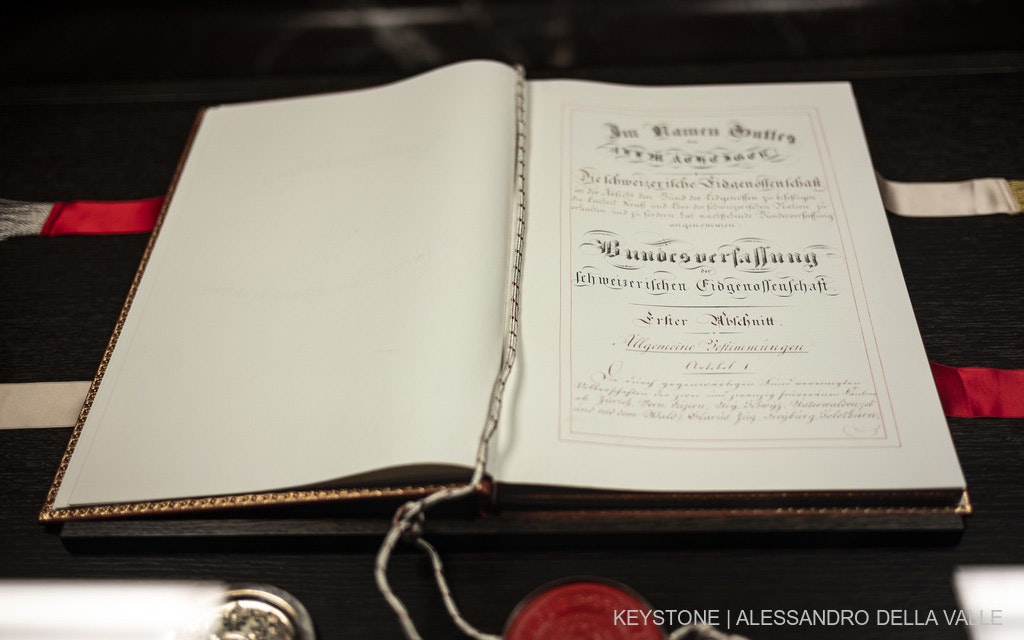 Im Namen Gottes
des
Allmächtigen!
Die schweizerische Eidgenossenschaft
in der Absicht, den Bund der Eidgenossen zu befestigen,
die Einheit, Kraft und Ehre der schweizerischen Nation zu
erhalten und zu fördern, hat nachstehende Bundesverfassung
angenommen:
Bundesverfassung
der
schweizerischen Eidgenossenschaft.
Erster Abschnitt.
Allgemeine Bestimmungen
Artikel 1
Die durch gegenwärtigen Bund vereinigten
Völkerschaften der zwei und zwanzig souveränen Kantone
als: Zürich, Bern, Luzern, Ury, Schwyz, Unterwalden, ob
und nid dem Wald, Glarus, Zug, Freyburg, Solothurn,
KEYSTONE | ALESSANDRO DELLA VALLE